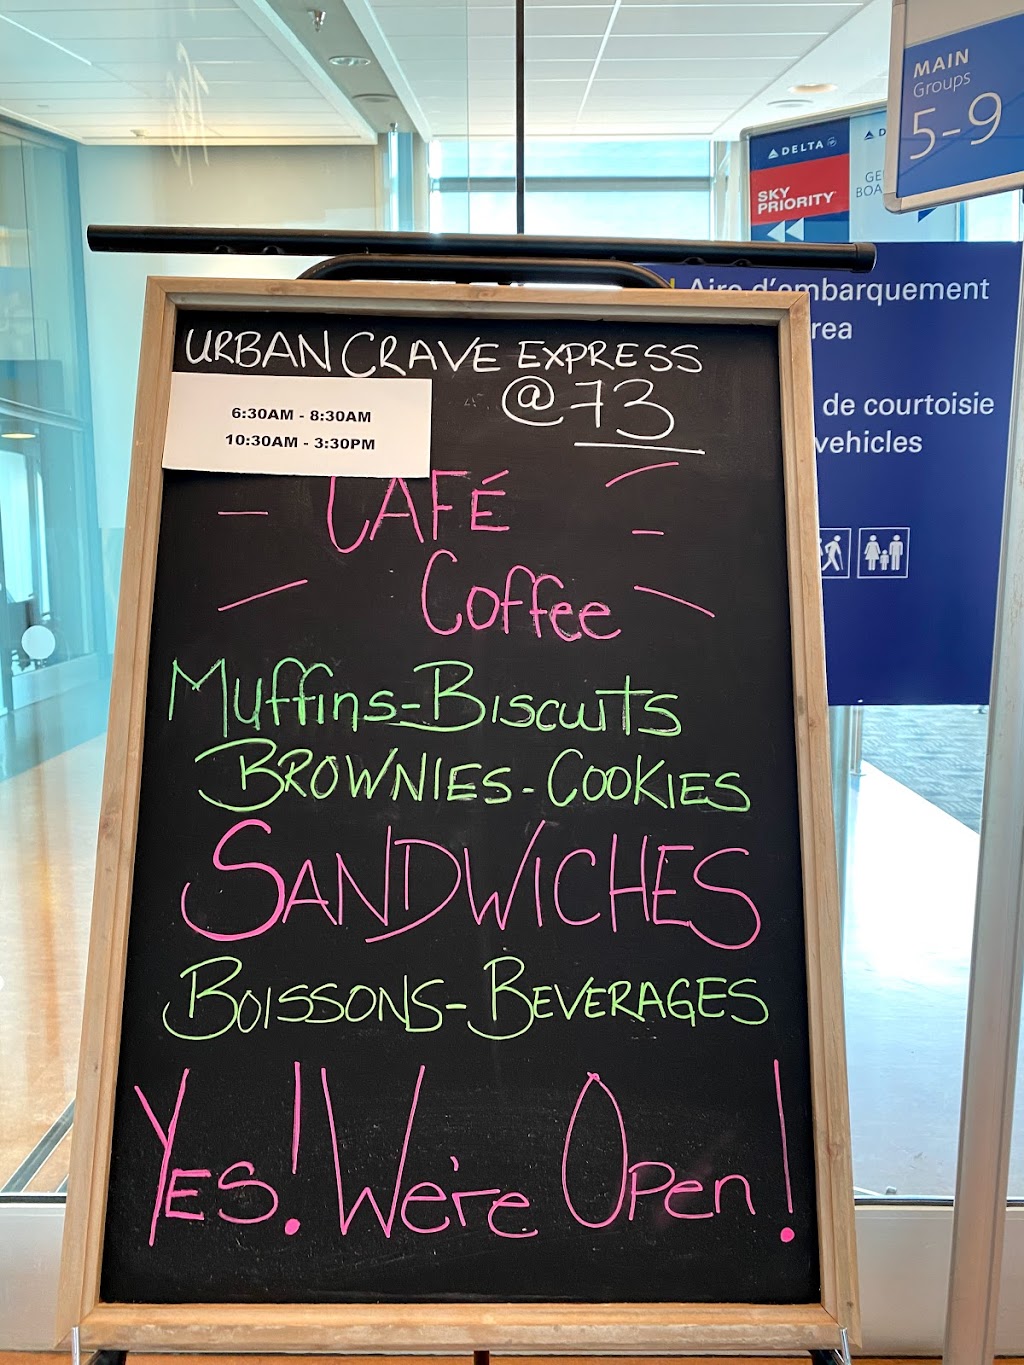 MAIN
Groups
5-9
DELTA
SKY
PRIORITY
Aire d'embarquement
de courtoisie
vehicles
URBAN CRAVE EXPRESS
@ 73
6:30AM - 8:30AM
10:30AM - 3:30PM
CAFÉ
Coffee
Muffins-Biscuits
BROWNIES-COOKIES
SANDWICHES
BOISSONS-BEVERAGES
YES! We're Open!